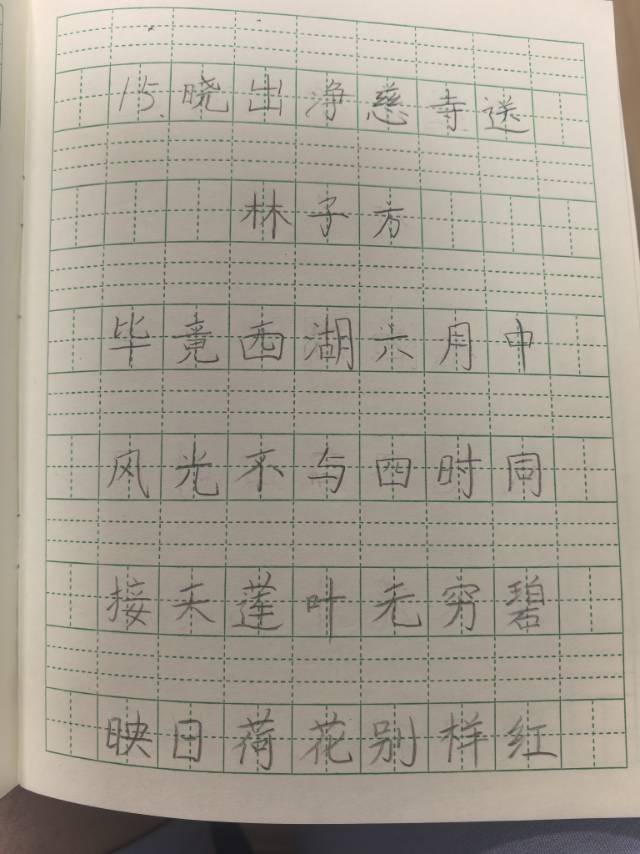 15.晓出净慈寺送
林子方
毕竟西湖六月中
风光不与四时同
接天莲叶无穷碧
映日荷花别样红